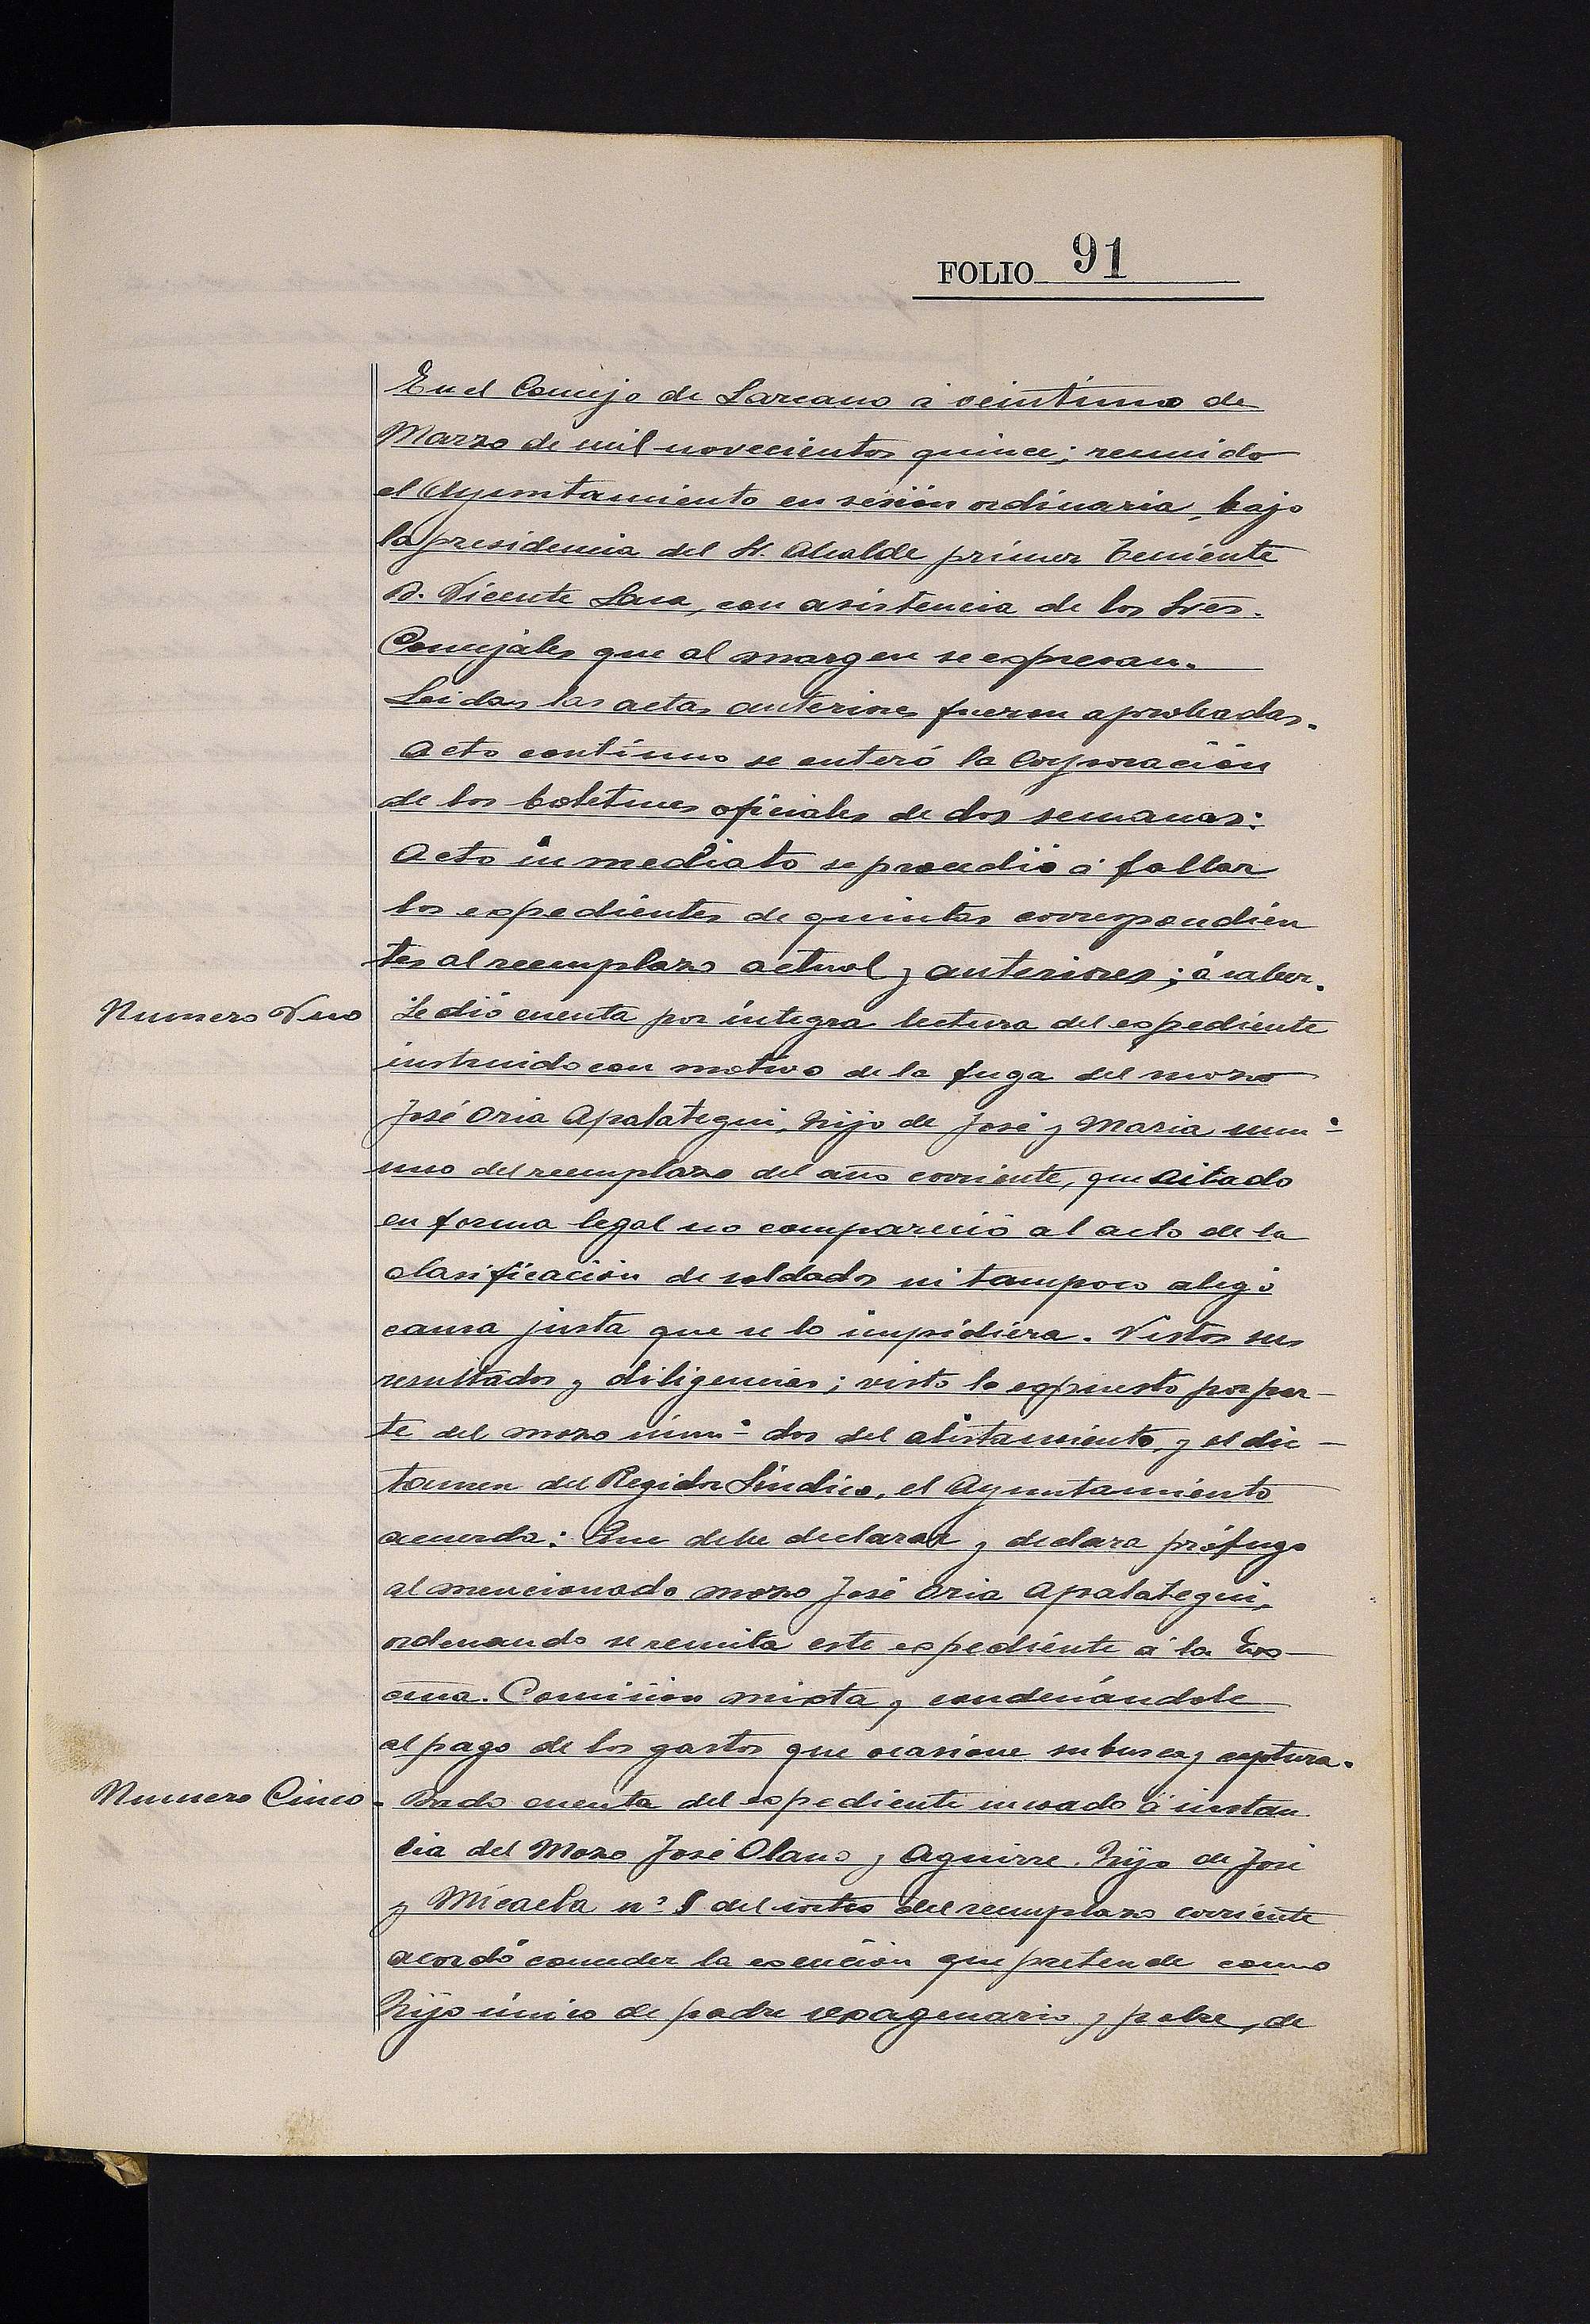 FOLIO 91
En el Concejo de Lazcano á veintiuno de
Marzo de mil novecientos quince; reunido
el Ayuntamiento en sesión ordinaria, bajo
la presidencia del Sr. Alcalde primer Teniente
D. Vicente Lasa, con asistencia de los Sres.
Concejales que al margen se expresan.
Leidas las actas anteriores fueron aprobadas.
Acto contínuo se enteró la Corporación
de los boletines oficiales de dos semanas:
Acto inmediato se procedió á fallar
los expedientes de quintas correspondien
tes al reemplazo actual y anteriores; á saber.
Numero Uno
Se dió cuenta por íntegra lectura del expediente
instruido con motivo de la fuga del mozo
José Oria Apalategui, hijo de José y Maria num.º
uno del reemplazo del año corriente, que citado
en forma legal no compareció al acto de la
clasificación de soldados ni tampoco alegó
causa justa que se lo impidiera. Vistos sus
resultados y diligencias; visto lo expuesto por par-
te del mozo núm.º dos del alistamiento, y el dic-
tamen del Regidor Síndico, el Ayuntamiento
acuerda: Que debe declarar y declara prófugo
al mencionado mozo José Oria Apalategui,
ordenando se remita este expediente á la Ex-
cma. Comision mixta y condenándole
al pago de los gastos que ocasione su busca y captura.
Numero Cinco.
Dado cuenta del expediente incoado á instan
cia del Mozo José Olano y Aguirre. hijo de José
y Micaela n.º 5 del sorteo del reemplazo corriente
acordó conceder la exención que pretende como
hijo único de padre sexagenario y pobre, de